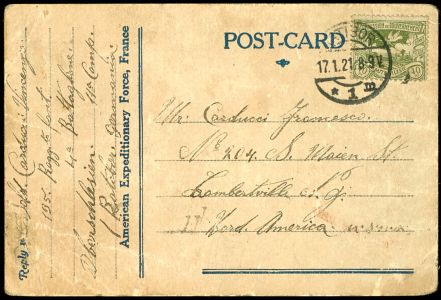 POST-CARD
17.1.21.8-9V.
* 1 m
Mr. Carducci Francesco
No 204. S. Maien St.
Lambertville N. J.
Nord. America
Reply to
Carducci Vincenzo
135. Regg. Fant
4a Battaglione
11a Comp.
Oberschlesien
Ratibor. Germania
American Expeditionary Force, France